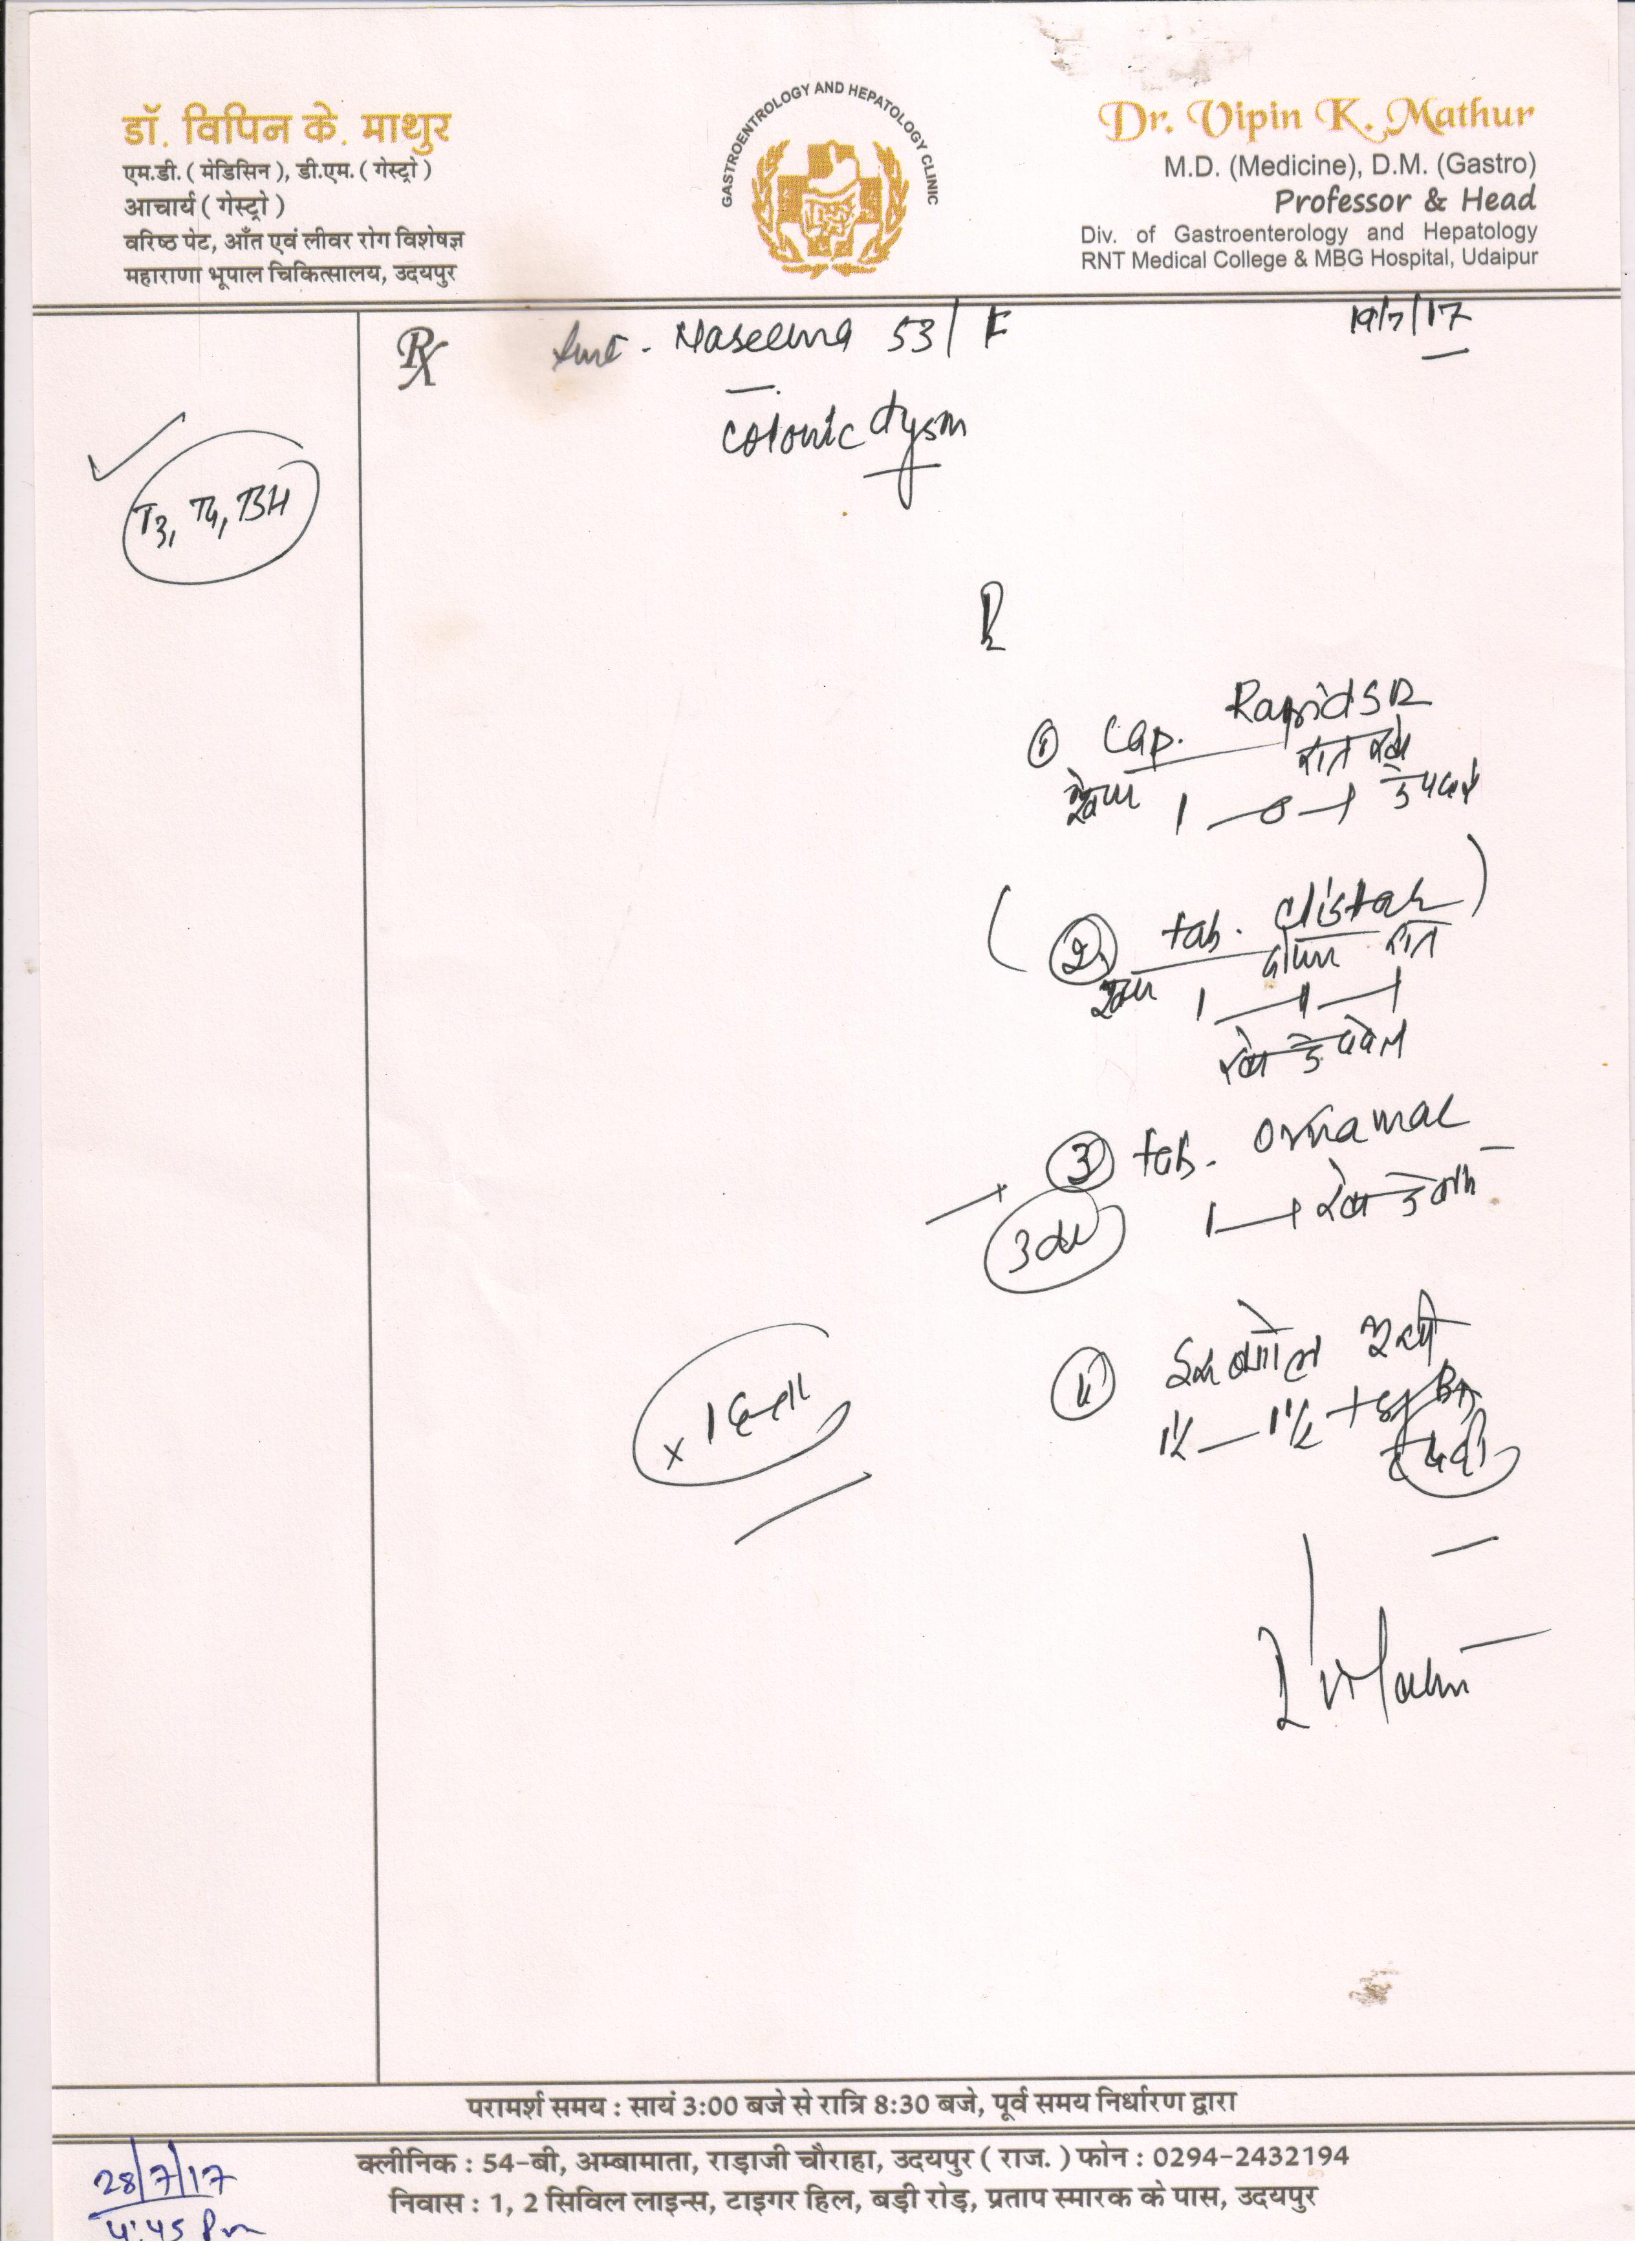 डॉ. विपिन के. माथुर
एम.डी. ( मेडिसिन ), डी.एम. ( गेस्ट्रो )
आचार्य ( गेस्ट्रो )
वरिष्ठ पेट, आँत एवं लीवर रोग विशेषज्ञ
महाराणा भूपाल चिकित्सालय, उदयपुर
GASTROENTROLOGY AND HEPATOLOGY CLINIC
Dr. Vipin K. Mathur
M.D. (Medicine), D.M. (Gastro)
Professor & Head
Div. of Gastroenterology and Hepatology
RNT Medical College & MBG Hospital, Udaipur
19/7/17
Rx
Smt. Naseema 53/F
colonic dysm
T3, T4, TSH
R
① Cap. Rapid SR
रात
1 — 0 — 1
② tab. Clistak
रात
1 — 1 — 1
③ tab. Ornamac
1 — 1
④ ईसबगोल भूसी
1½ — 1½ +
x 1
परामर्श समय : सायं 3:00 बजे से रात्रि 8:30 बजे, पूर्व समय निर्धारण द्वारा
क्लीनिक : 54-बी, अम्बामाता, राड़ाजी चौराहा, उदयपुर ( राज. ) फोन : 0294-2432194
निवास : 1, 2 सिविल लाइन्स, टाइगर हिल, बड़ी रोड़, प्रताप स्मारक के पास, उदयपुर
28/7/17
4:45 Pm